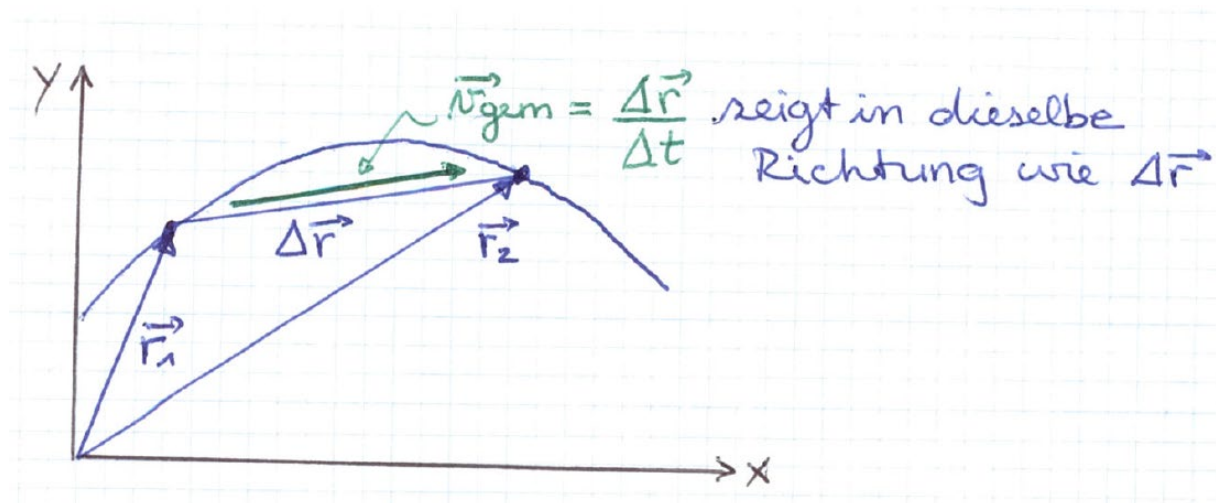 y
v⃗gem = Δr⃗/Δt zeigt in dieselbe
Richtung wie Δr⃗
Δr⃗
r⃗₂
r⃗₁
x